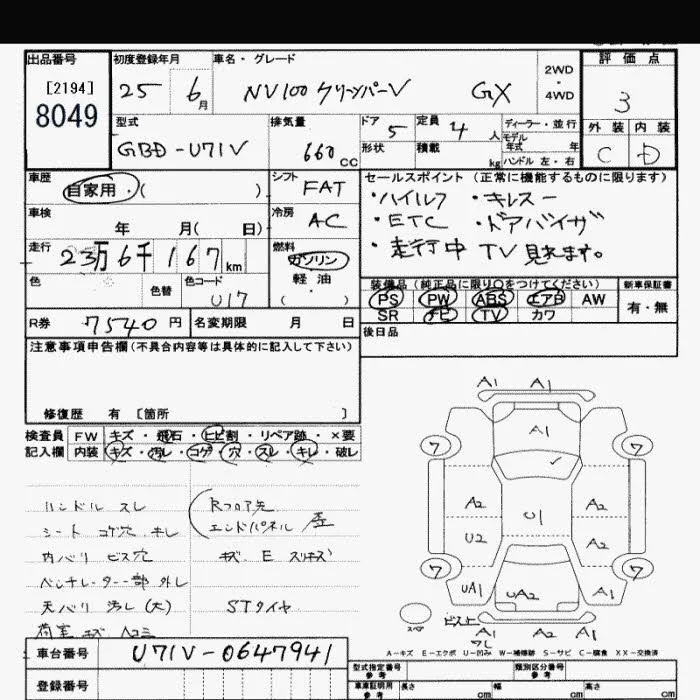 出品番号
[2194]
8049
初度登録年月
25 6月
車名・グレード
NV100 クリッパーV GX
2WD
・
4WD
評価点
3
外装 内装
C D
型式
GBD-U71V
排気量
660 CC
ドア
5
形状
定員
4 人
積載
kg
ディーラー・並行
モデル
年式 年
ハンドル 左・右
車歴
自家用・( )
シフト
FAT
セールスポイント(正常に機能するものに限ります)
・ハイルーフ ・キレスー
・ETC ・ドアバイザ
・走行中 TV 見れます。
車検
年 月( 日)
冷房
AC
走行
23万6千167km
燃料
ガソリン
・
軽油
・
( )
色
色替
色コード
U17
装備品(純正品に限り〇をつけてください)
新車保証書
PS PW ABS エアB AW
有・無
SR ナビ TV カワ
R券 7540円
名変期限 月 日
後日品
注意事項申告欄(不具合内容等は具体的に記入して下さい)
修復歴 有 [箇所 ]
検査員
記入欄
FW キズ・飛石・ヒビ割・リペア跡・×要
内装 キズ・汚レ・コゲ・穴・スレ・キレ・破レ
ハンドル スレ
シート コゲ穴 キレ
内バリ ビス穴
ベンチレーター一部 外し
天バリ 汚レ(大)
荷室 キズ ヘコミ
Rフロア先
エンドパネル 歪
キズ E スリキズ
STタイヤ
A1 A1
A1
7 7
A2 A2
U1
U2 A2
7 7
UA1 UA2 A1
スペア
A1 A1
A-キズ E-エクボ U-凹み W-補修跡 S-サビ C-腐食 XX-交換済
車台番号
U71V-0647941
登録番号
型式指定番号
参考
類別区分番号
参考
車車証明用
参考
長さ cm
幅 cm
高さ cm